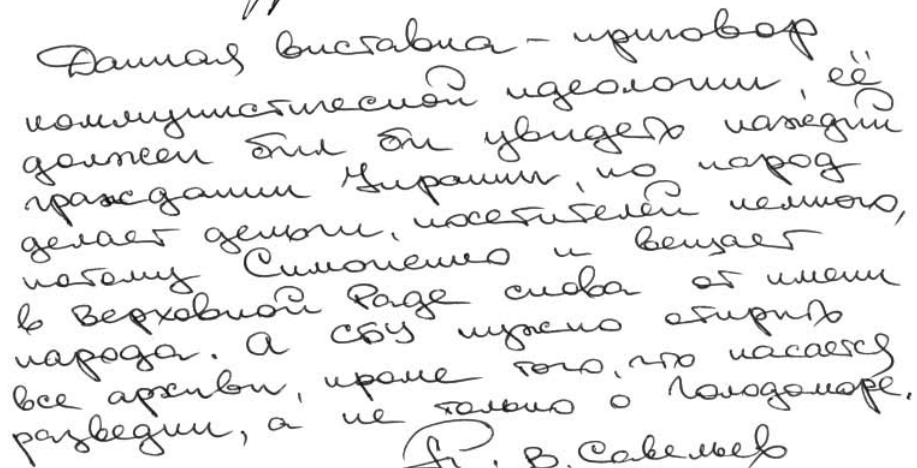 Данная выставка – приговор
коммунистической идеологии, её
должен был бы увидеть каждый
гражданин Украины, но народ
делает деньги, посетителей немного,
потому Симоненко и вещает
в Верховной Раде слова от имени
народа. А СБУ нужно открыть
все архивы, кроме того, что касается
разведки, а не только о Голодоморе.
В. Савельев